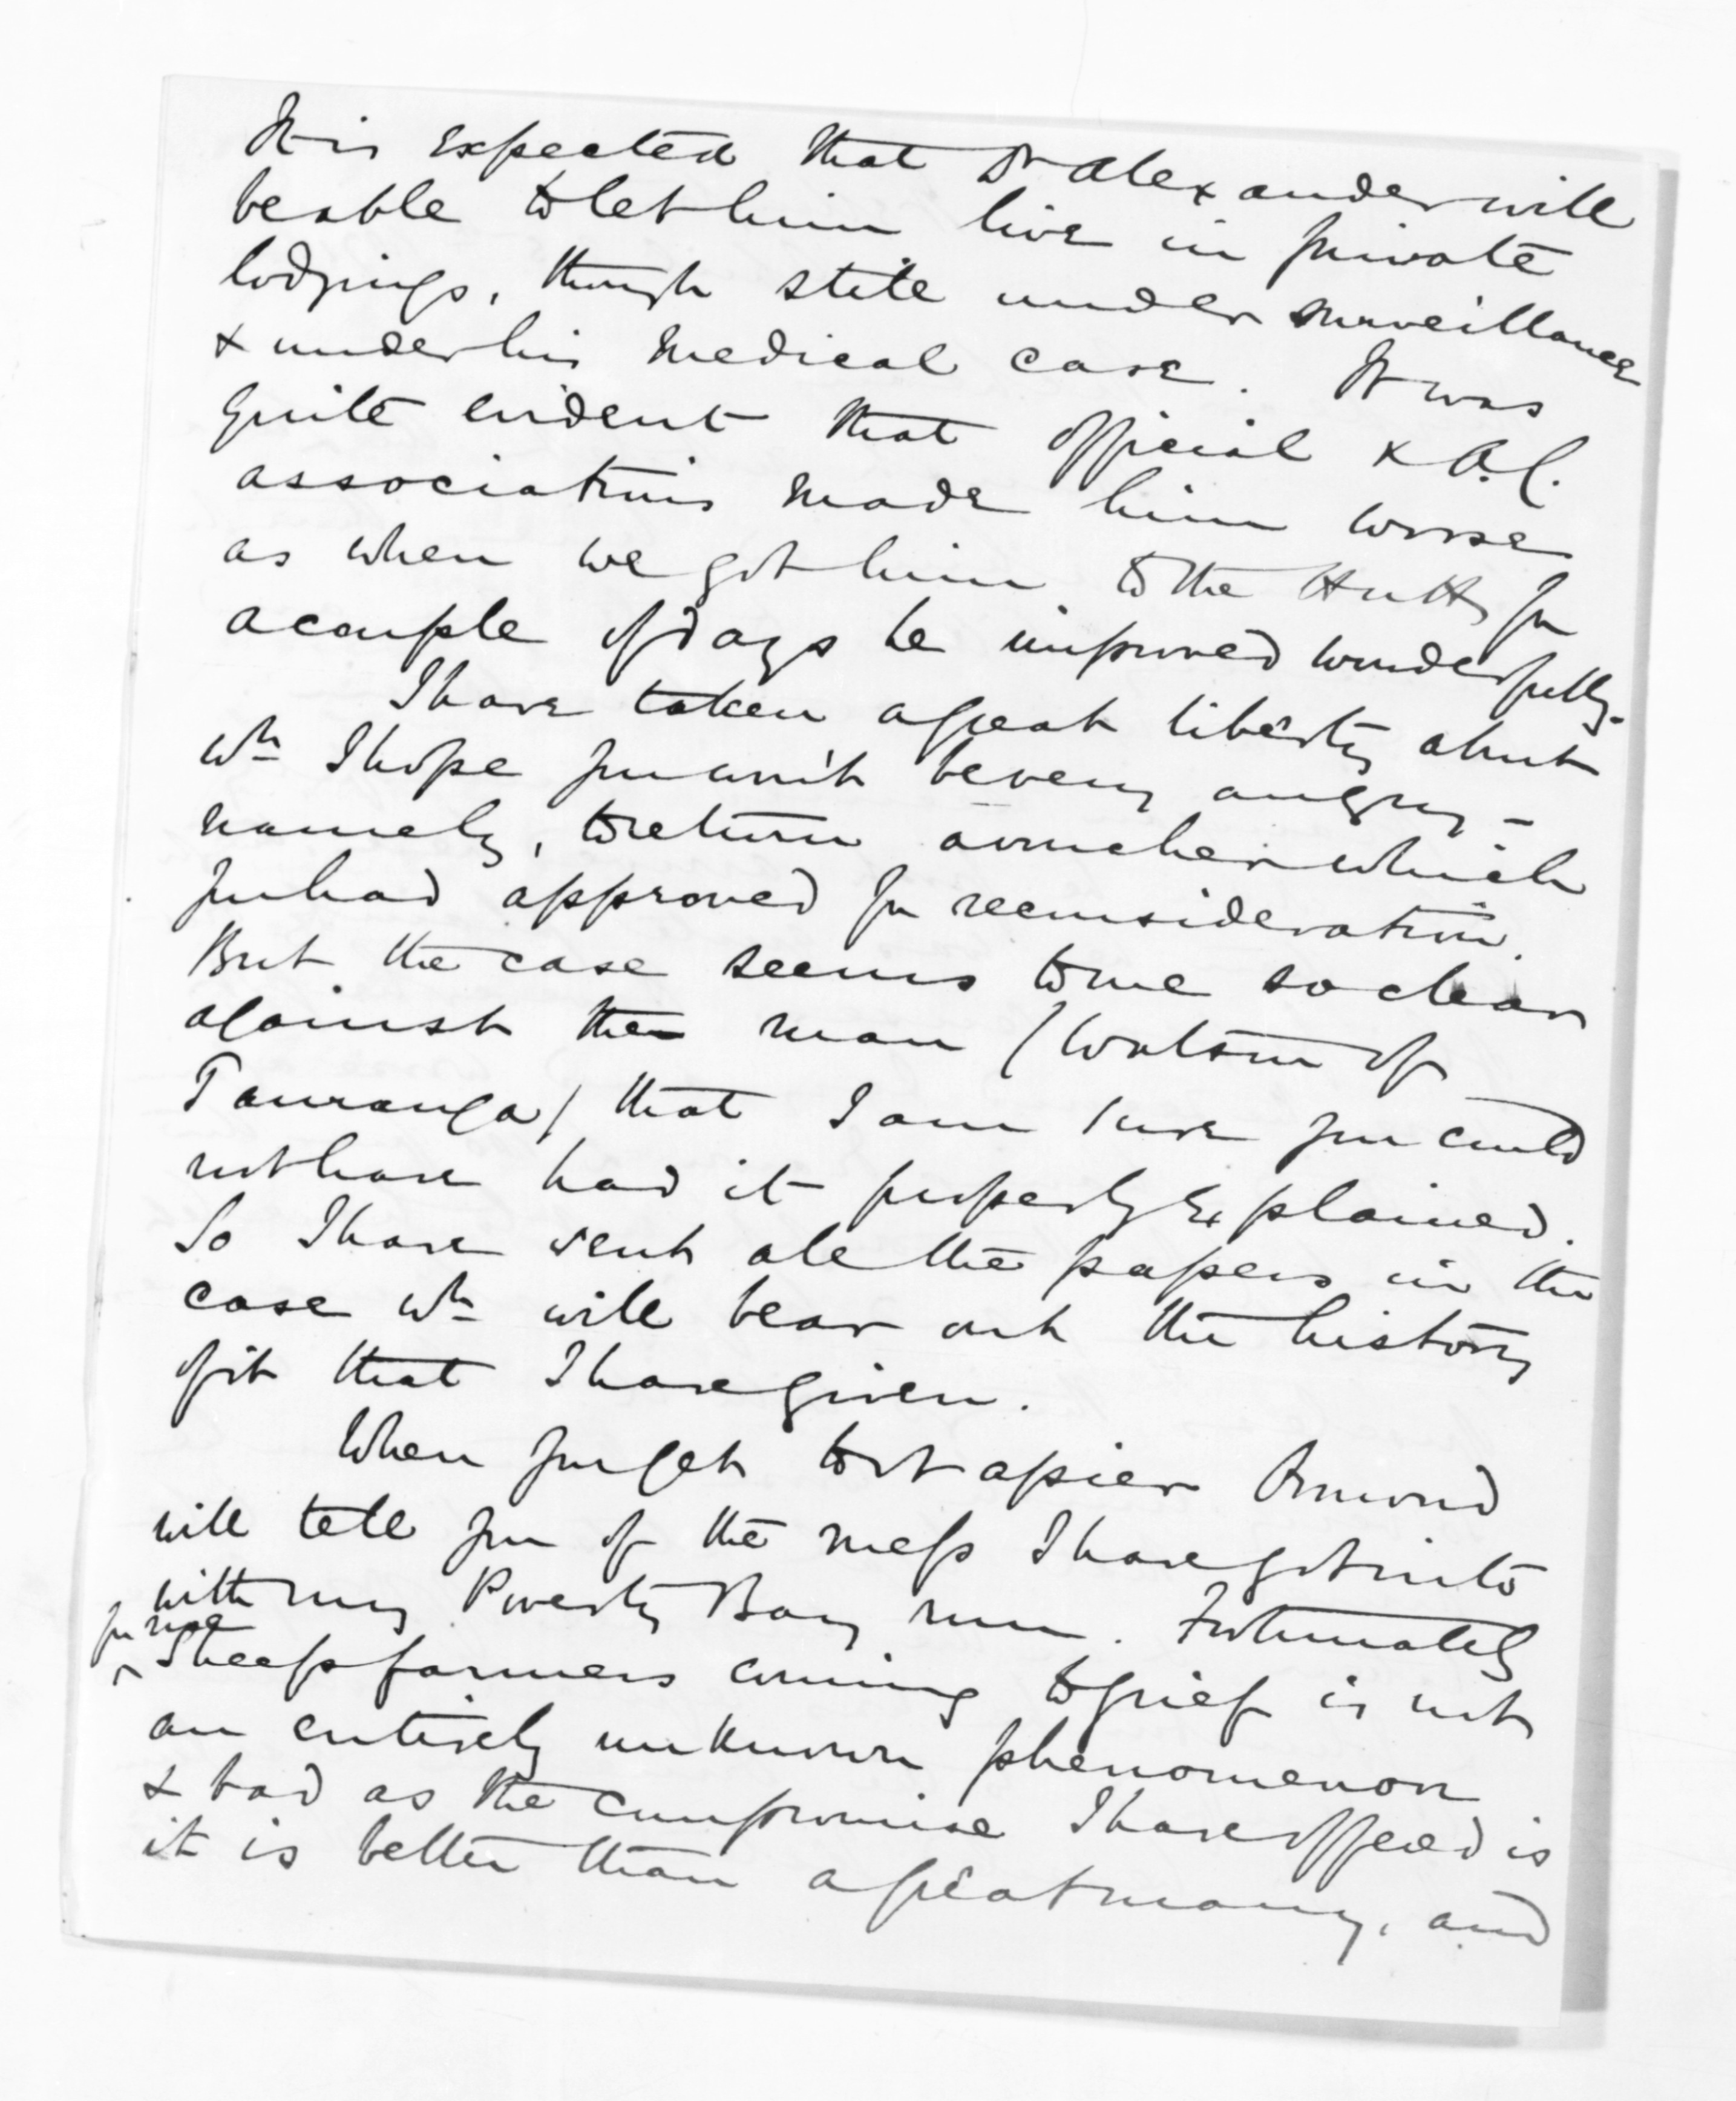 It is expected that Dr Alexander will
be able to let him live in private
lodgings, though still under surveillance
& under his medical care. It was
quite evident that official & A.C.
associations made him worse
as when we got him to the Hutt for
a couple of days he improved wonderfully.
I have taken a great liberty about
wh I hope you won't be very angry –
namely, to return a voucher which
you had approved for reconsideration.
But the case seems to me so clear
against the man (Watson of
Tauranga) that I am sure you could
not have had it properly explained.
So I have sent all the papers in the
case wh will bear out the history
of it that I have given.
When you get to Napier Ormond
will tell you of the mess I have got into
with my Poverty Bay run. Fortunately
for me
Sheepfarmers coming to grief is not
an entirely unknown phenomenon
& bad as the compromise I have offered is
it is better than a great many, and